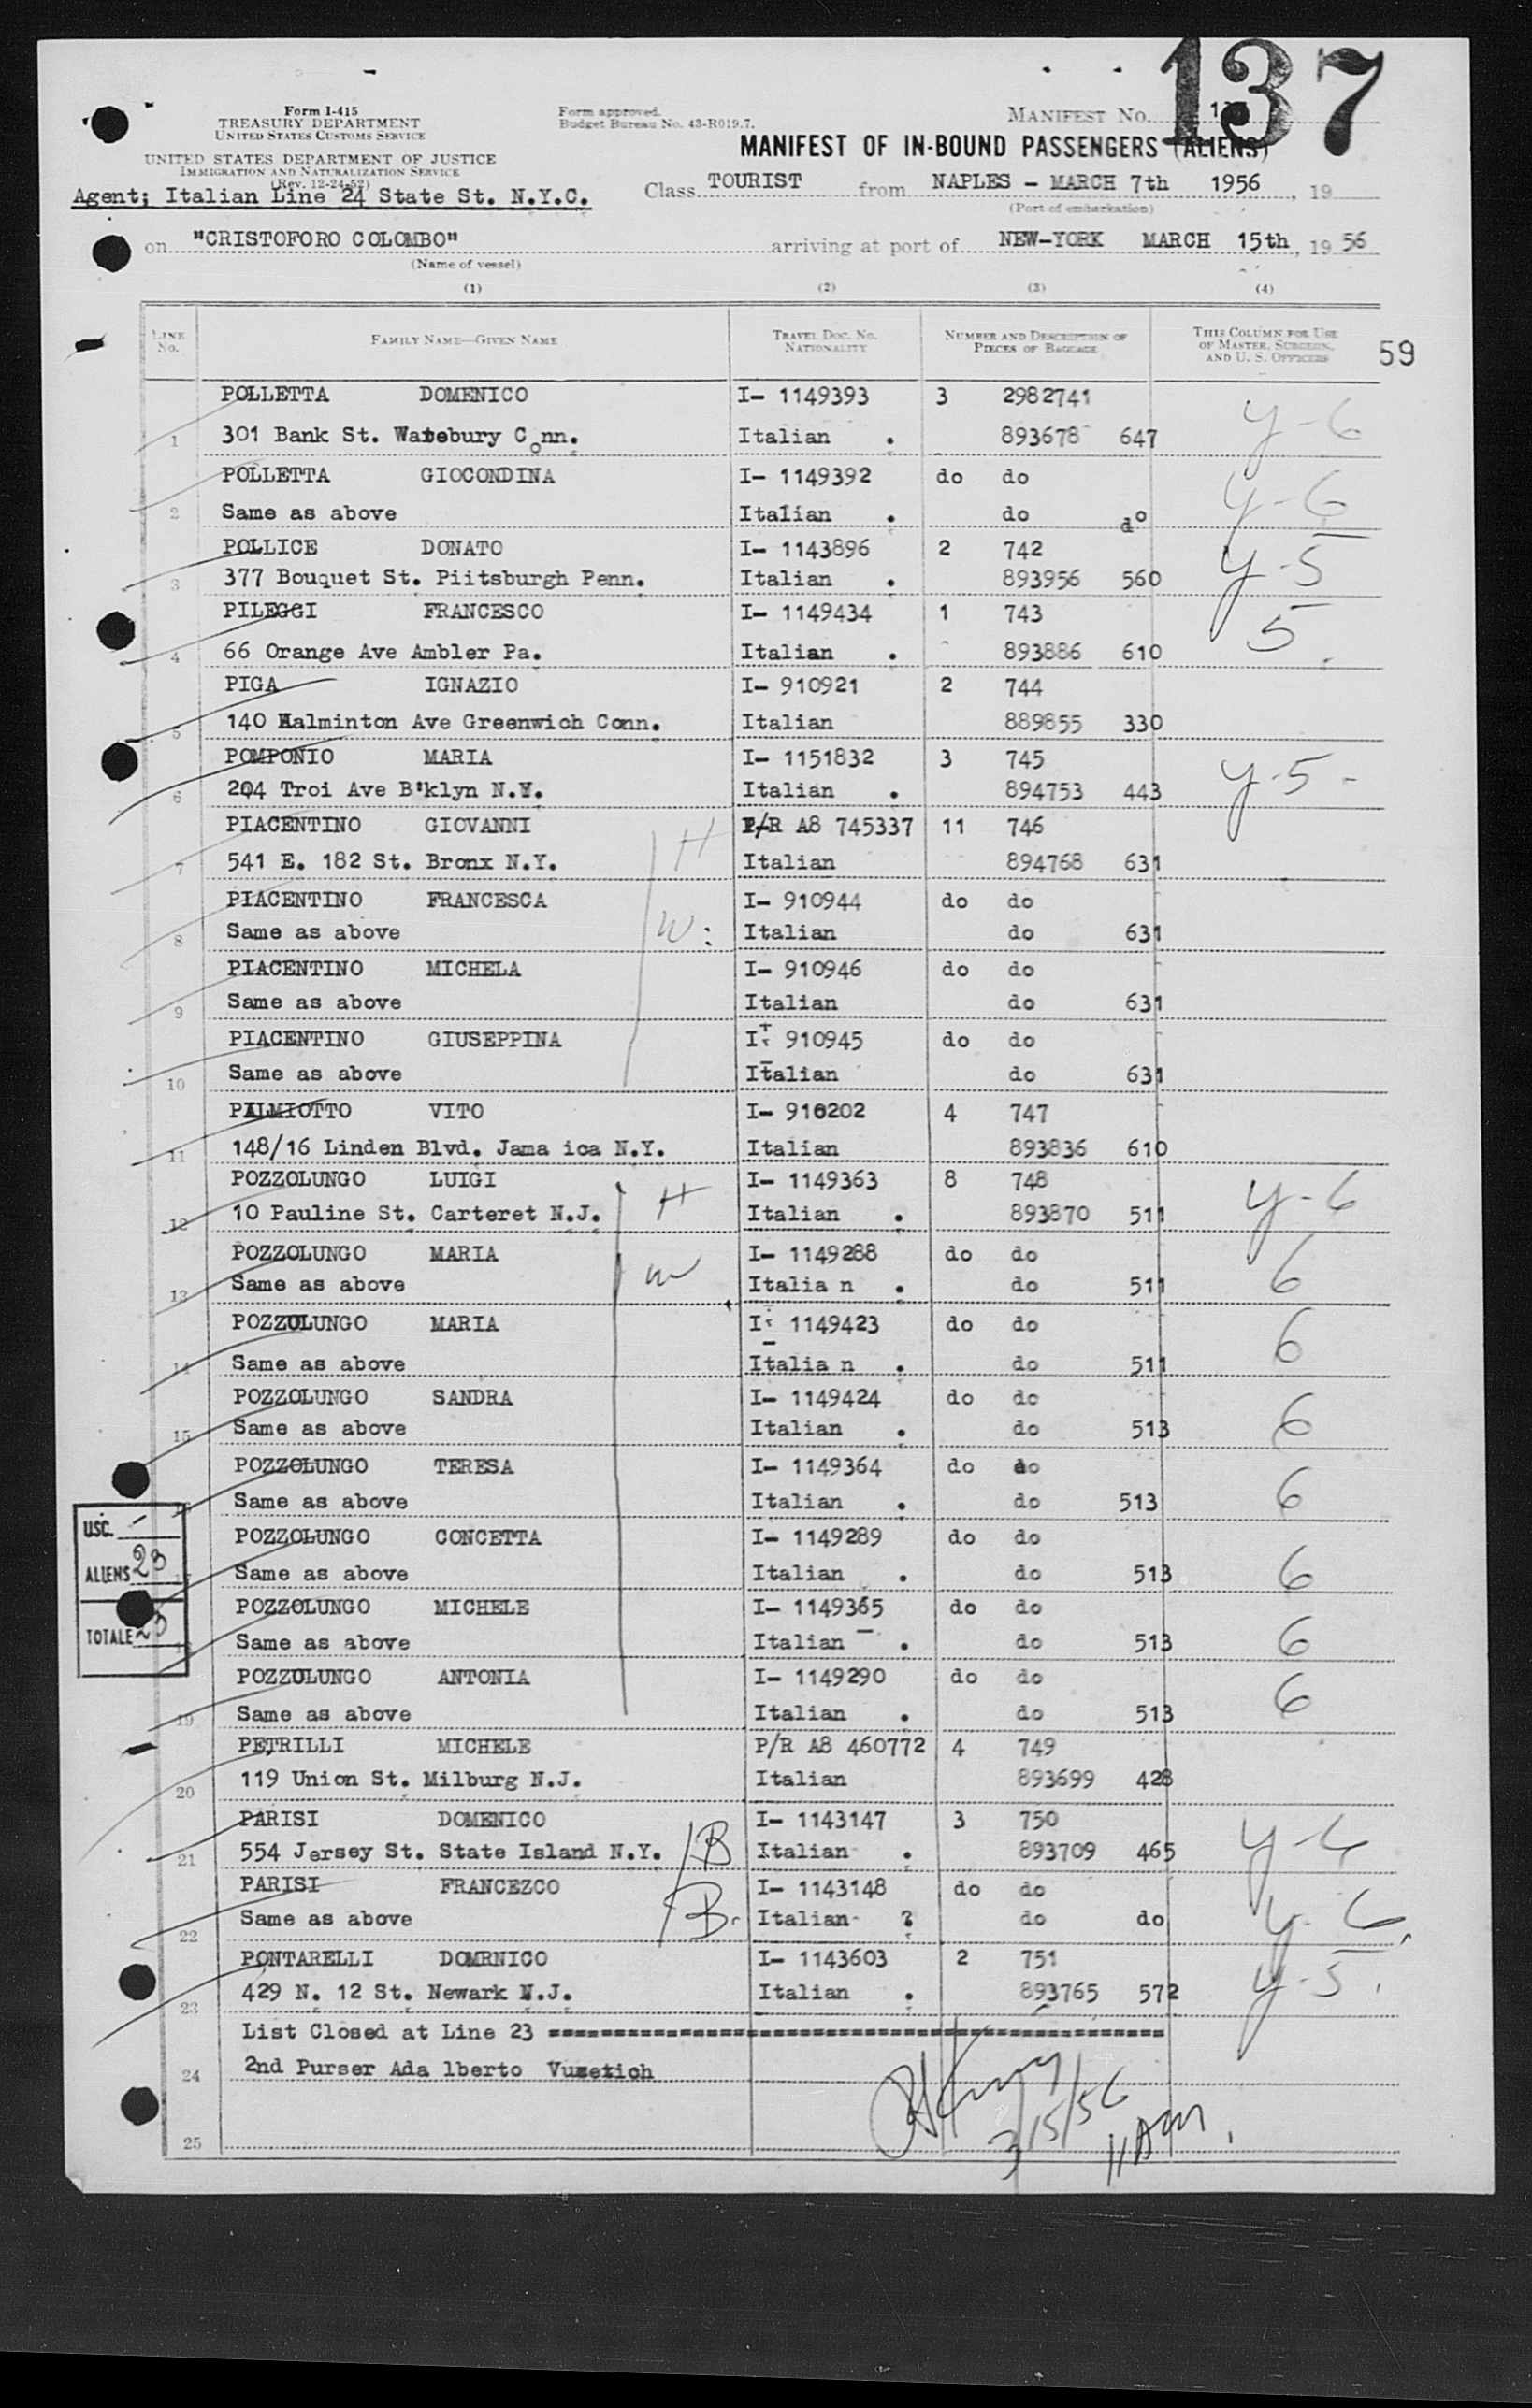 137
Form I-415
TREASURY DEPARTMENT
UNITED STATES CUSTOMS SERVICE
UNITED STATES DEPARTMENT OF JUSTICE
IMMIGRATION AND NATURALIZATION SERVICE
(Rev. 12-24-52)
Agent; Italian Line 24 State St. N.Y.C.
Form approved.
Budget Bureau No. 43-R019.7.
MANIFEST No.
MANIFEST OF IN-BOUND PASSENGERS (ALIENS)
Class TOURIST from NAPLES - MARCH 7th 1956, 19
(Port of embarkation)
on "CRISTOFORO COLOMBO" arriving at port of NEW-YORK MARCH 15th, 19 56
(Name of vessel)
(1) (2) (3) (4)
LINE No. FAMILY NAME—GIVEN NAME TRAVEL DOC. No. NATIONALITY NUMBER AND DESCRIPTION OF PIECES OF BAGGAGE THIS COLUMN FOR USE OF MASTER, SURGEON, AND U. S. OFFICERS 59
POLLETTA DOMENICO I- 1149393 3 2982741 y-6
1 301 Bank St. Watebury Conn. Italian . 893678 647
POLLETTA GIOCONDINA I- 1149392 do do y-6
2 Same as above Italian . do do
POLLICE DONATO I- 1143896 2 742 y-5
3 377 Bouquet St. Piitsburgh Penn. Italian . 893956 560
PILEGGI FRANCESCO I- 1149434 1 743 5
4 66 Orange Ave Ambler Pa. Italian . 893886 610
PIGA IGNAZIO I- 910921 2 744
5 140 Halminton Ave Greenwich Conn. Italian 889855 330
POMPONIO MARIA I- 1151832 3 745 y-5-
6 204 Troi Ave B'klyn N.Y. Italian . 894753 443
PIACENTINO GIOVANNI H P/R A8 745337 11 746
7 541 E. 182 St. Bronx N.Y. Italian 894768 631
PIACENTINO FRANCESCA I- 910944 do do
8 Same as above W: Italian do 631
PIACENTINO MICHELA I- 910946 do do
9 Same as above Italian do 631
PIACENTINO GIUSEPPINA I- 910945 do do
10 Same as above Italian do 631
PALMIOTTO VITO I- 910202 4 747
11 148/16 Linden Blvd. Jama ica N.Y. Italian 893836 610
POZZOLUNGO LUIGI H I- 1149363 8 748 y-6
12 10 Pauline St. Carteret N.J. Italian . 893870 511
POZZOLUNGO MARIA W I- 1149288 do do 6
13 Same as above Italia n . do 511
POZZOLUNGO MARIA I- 1149423 do do 6
14 Same as above Italia n . do 511
POZZOLUNGO SANDRA I- 1149424 do do 6
15 Same as above Italian . do 513
POZZOLUNGO TERESA I- 1149364 do do 6
16 Same as above Italian . do 513
POZZOLUNGO CONCETTA I- 1149289 do do
17 Same as above Italian . do 513 6
POZZOLUNGO MICHELE I- 1149365 do do
18 Same as above Italian . do 513 6
POZZOLUNGO ANTONIA I- 1149290 do do 6
19 Same as above Italian . do 513
PETRILLI MICHELE P/R A8 460772 4 749
20 119 Union St. Milburg N.J. Italian 893699 428
PARISI DOMENICO I- 1143147 3 750 y-6
21 554 Jersey St. State Island N.Y. B Italian . 893709 465
PARISI FRANCEZCO I- 1143148 do do
22 Same as above B. Italian ? do do y-6
PONTARELLI DOMRNICO I- 1143603 2 751
23 429 N. 12 St. Newark N.J. Italian . 893765 572 y-5.
List Closed at Line 23 ================
24 2nd Purser Ada lberto Vuzetich
25
3/15/56
11 AM.
USC. -
ALIENS 23
TOTALE 23